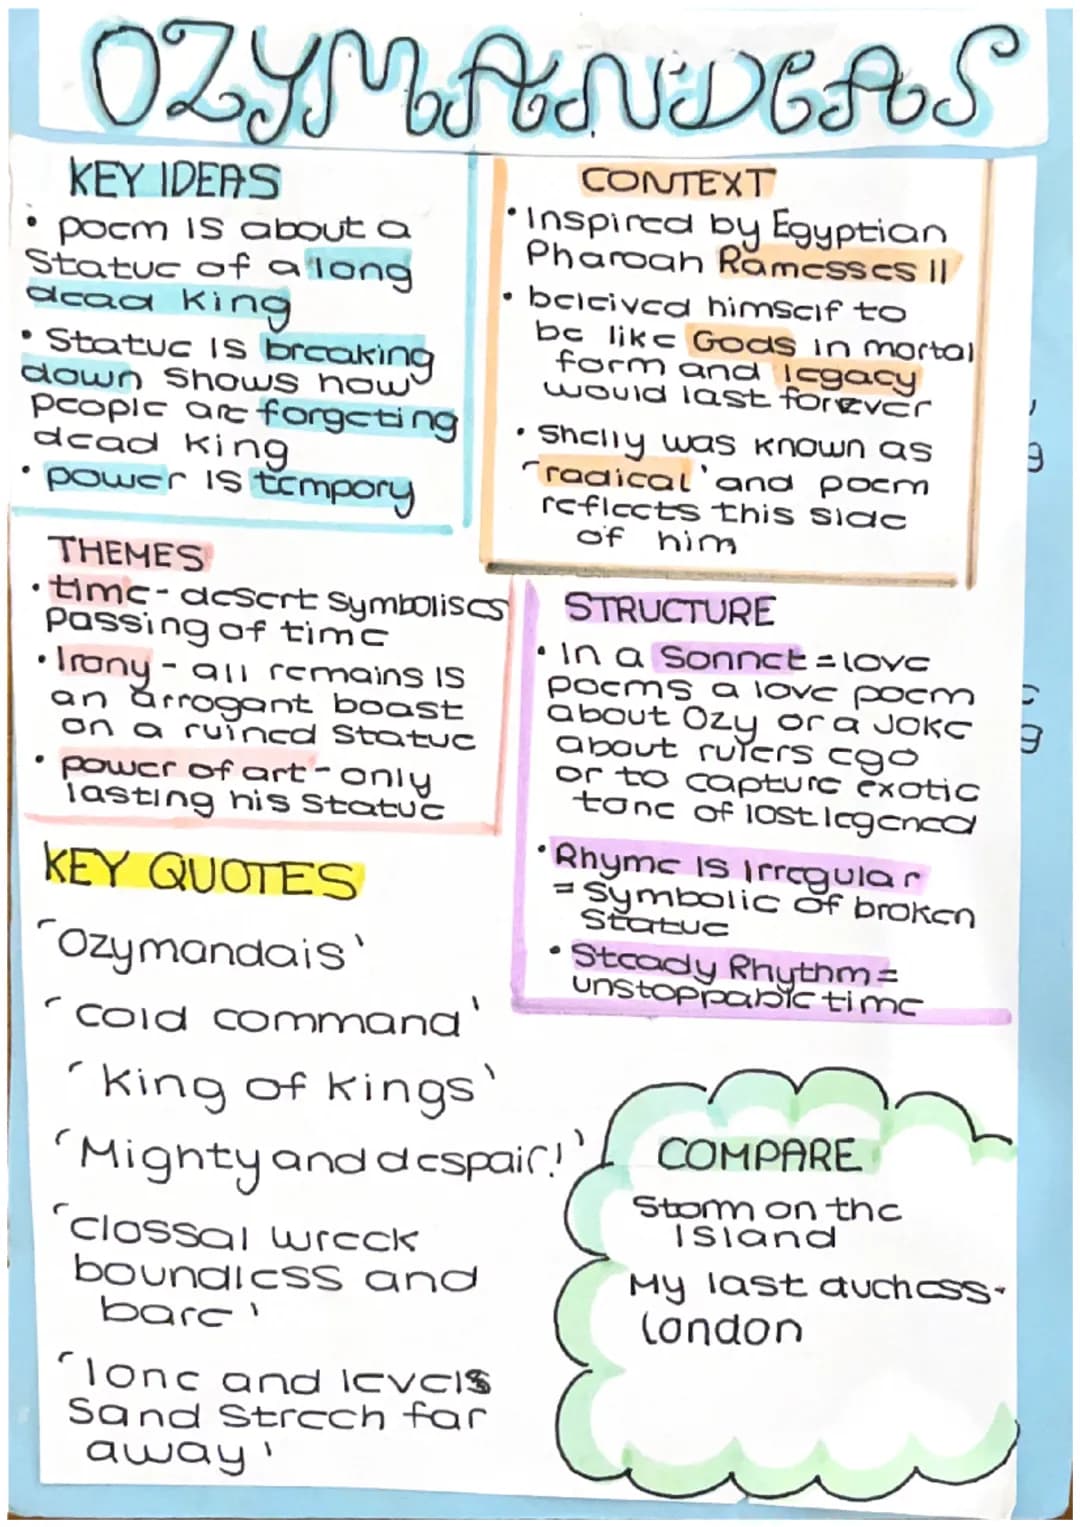 OZYMANDEAS
KEY IDEAS
• poem is about a
Statue of a long
dead King
• Statue is breaking
down shows how
people are forgeting
dead king
• power is tempory
CONTEXT
• Inspired by Egyptian
Pharoah Ramesses II
• beleived himself to
be like Gods in mortal
form and legacy
would last forever
• Shelly was known as
'radical' and poem
reflects this side
of him
THEMES
• time - desert symbolises
Passing of time
• Irony - all remains is
an arrogant boast
on a ruined statue
• power of art - only
lasting his statue
STRUCTURE
• In a Sonnet = love
poems a love poem
about Ozy or a Joke
about rulers ego
or to capture exotic
tone of lost legenad
• Rhyme is Irregular
= Symbolic of broken
Statue
• Steady Rhythm =
unstoppable time
KEY QUOTES
'Ozymandais'
'cold command'
'King of kings'
'Mighty and despair!'
'clossal wreck
boundless and
bare'
'lone and levels
Sand Streech far
away'
COMPARE
Storm on the
Island
My last duchess-
London